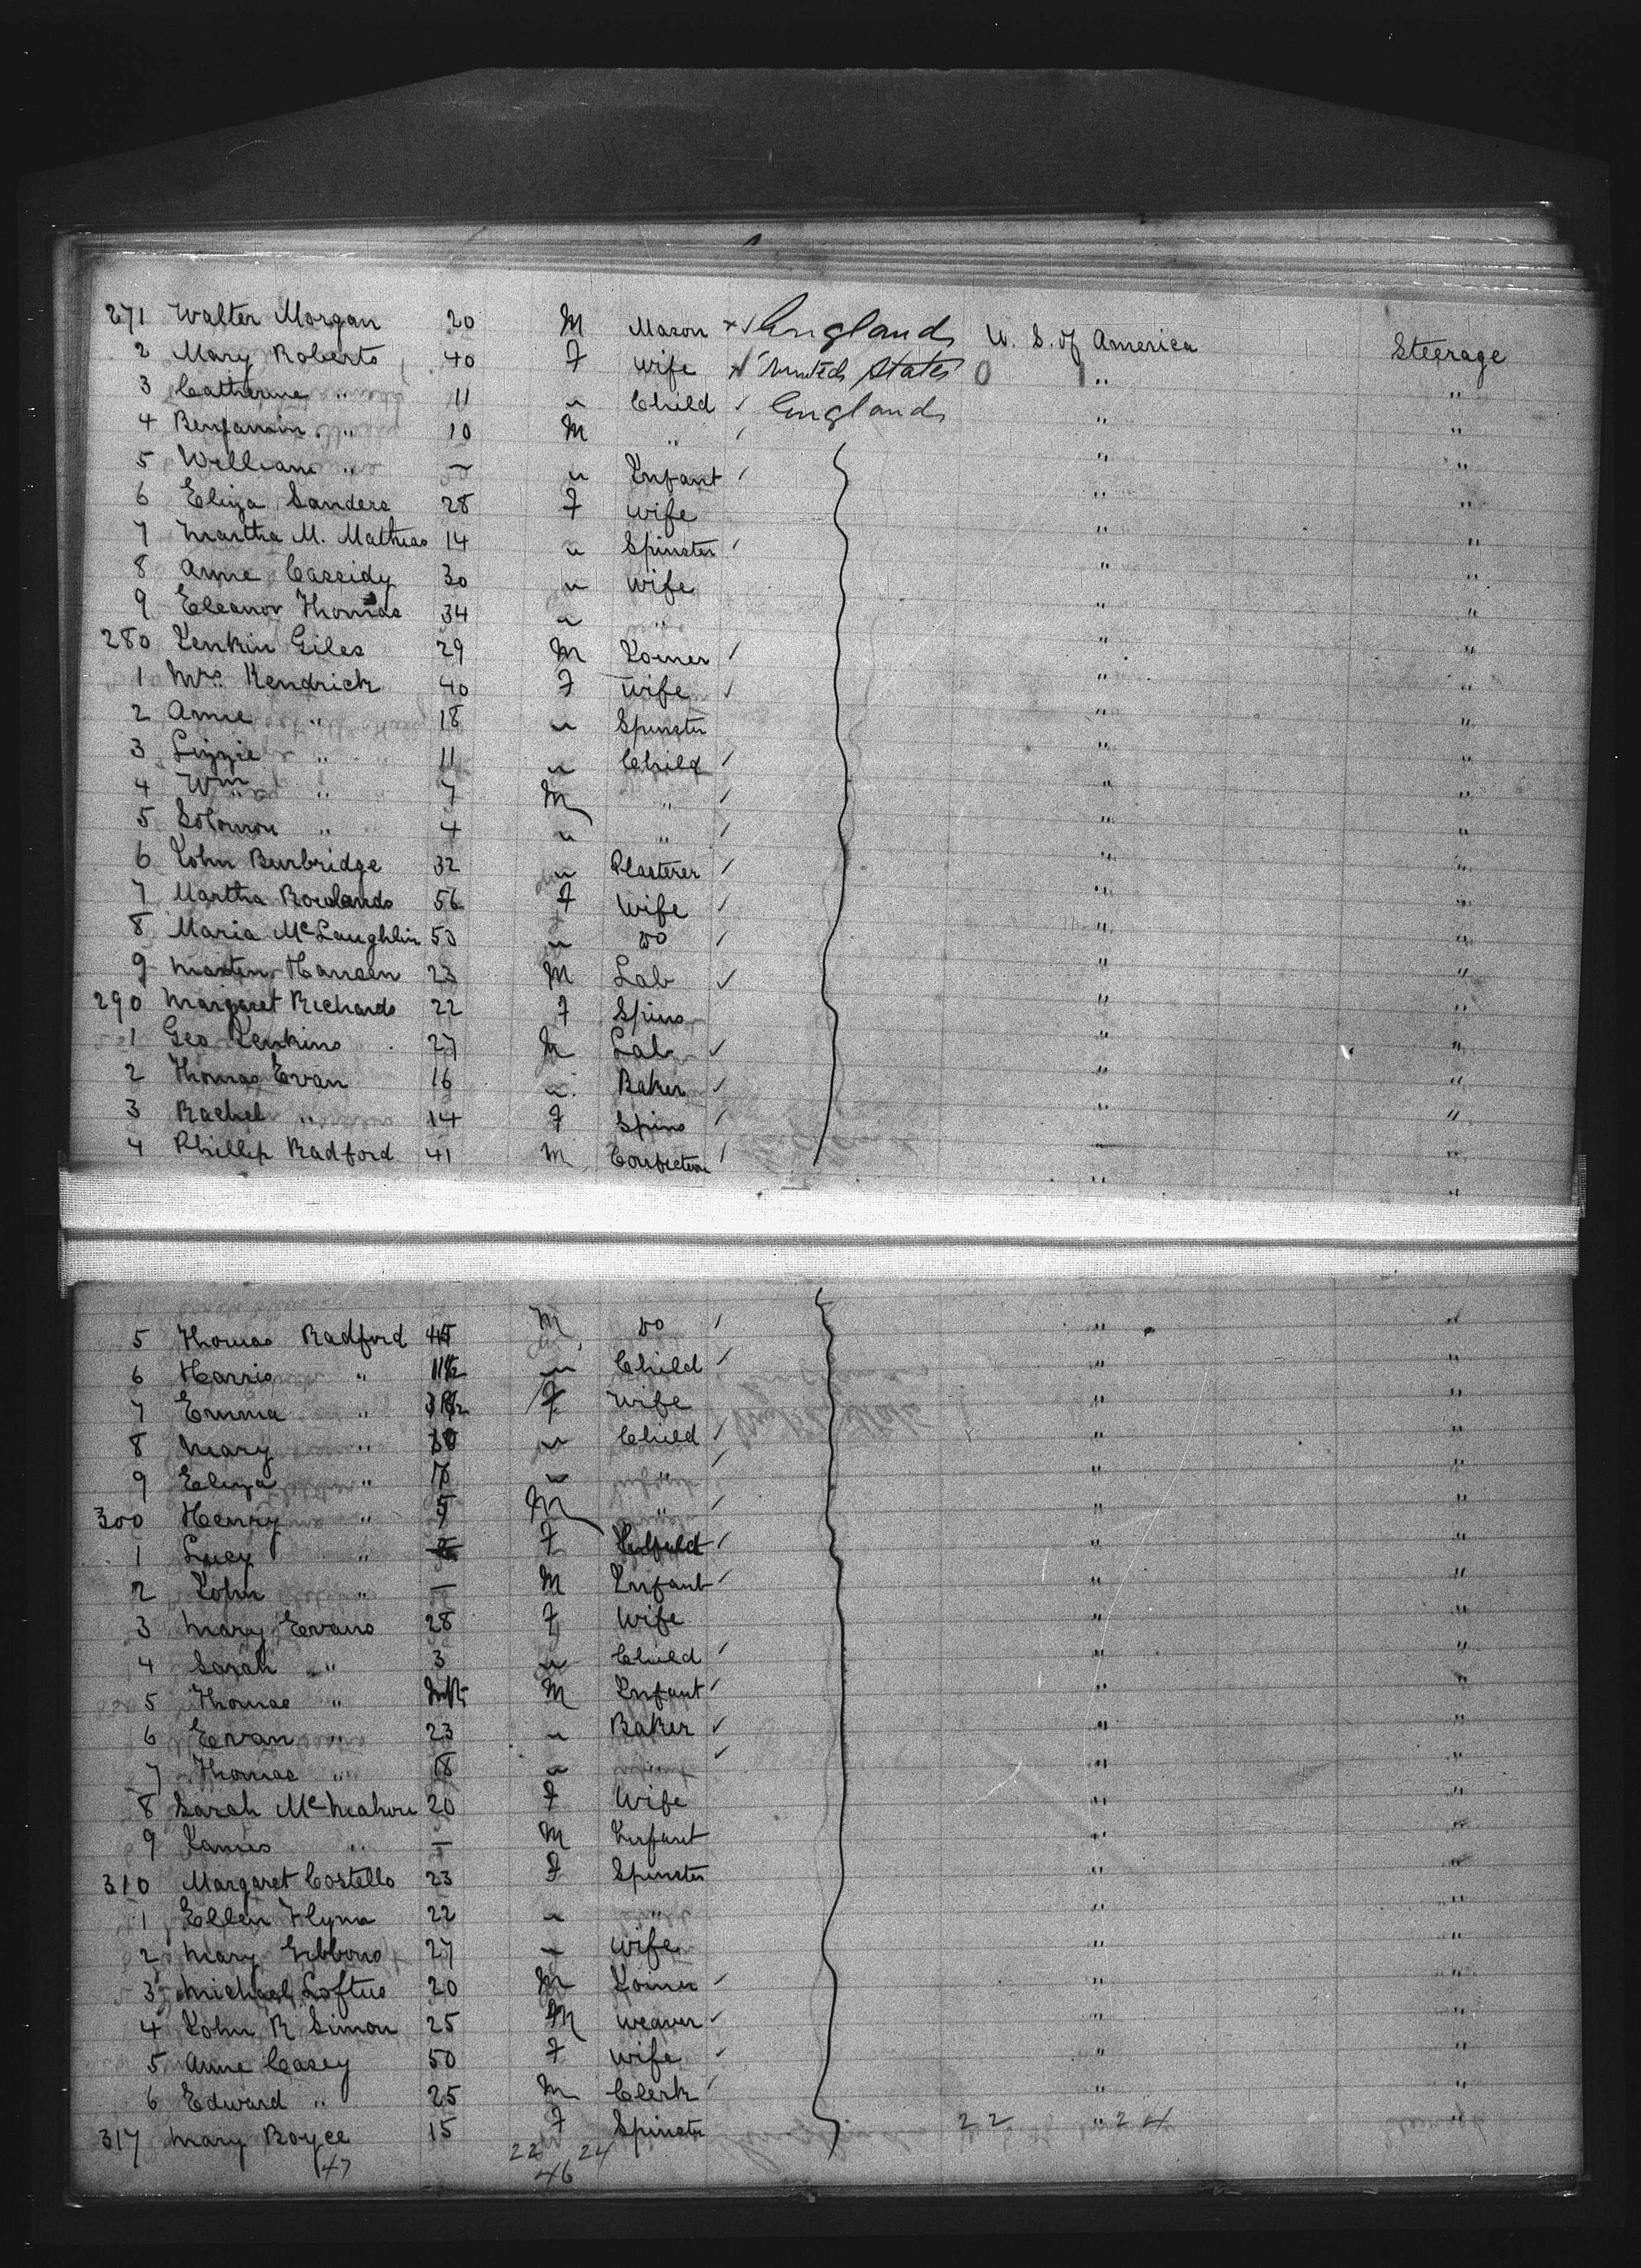 271 Walter Morgan 20 M Mason England U. S. of America Steerage
2 Mary Roberts 40 F Wife United States 0 " "
3 Catherine " 11 " Child England " "
4 Benjamin " 10 M " " "
5 William " — " Infant " "
6 Eliza Sanders 28 F Wife " "
7 Martha M. Mathias 14 " Spinster " "
8 Anne Cassidy 30 " Wife " "
9 Eleanor Thomas 34 " " " "
280 Jenkin Giles 29 M Joiner " "
1 Mrs. Kendrick 40 F Wife " "
2 Annie " 18 " Spinster " "
3 Lizzie " 11 " Child " "
4 Wm " 7 M " " "
5 Solomon " 4 " " " "
6 John Burbridge 32 " Plasterer " "
7 Martha Rowlands 56 F Wife " "
8 Maria McLaughlin 50 " Do " "
9 Hansen 23 M Lab " "
290 Margaret Richards 22 F Spins " "
1 Geo Jenkins 27 M Lab " "
2 Thomas Evan 16 " Baker " "
3 Rachel " 14 F Spins " "
4 Phillip Radford 41 M " "
5 Thomas Radford M Do " "
6 Harris " " Child " "
7 Emma " F Wife " "
8 Mary " " Child " "
9 Eliza " " " " "
300 Henry " M " " "
1 Lucy " F " "
2 John " — M Infant " "
3 Mary Evans 28 F Wife " "
4 Sarah " 3 " Child " "
5 Thomas " M Infant " "
6 Evan " 23 " Baker " "
7 Thomas " 18 " " " "
8 Sarah McMahon 20 F Wife " "
9 James " — M Infant " "
310 Margaret Costello 23 F Spinster " "
1 Ellen Flynn 22 " " " "
2 Mary Gibbons 27 " Wife " "
3 Michael Loftus 20 M Joiner " "
4 John R Simon 25 M Weaver " "
5 Anne Casey 50 F Wife " "
6 Edward " 25 M Clerk " "
317 Mary Boyce 15 F Spinster 22 " 24 "
47 22 24
46